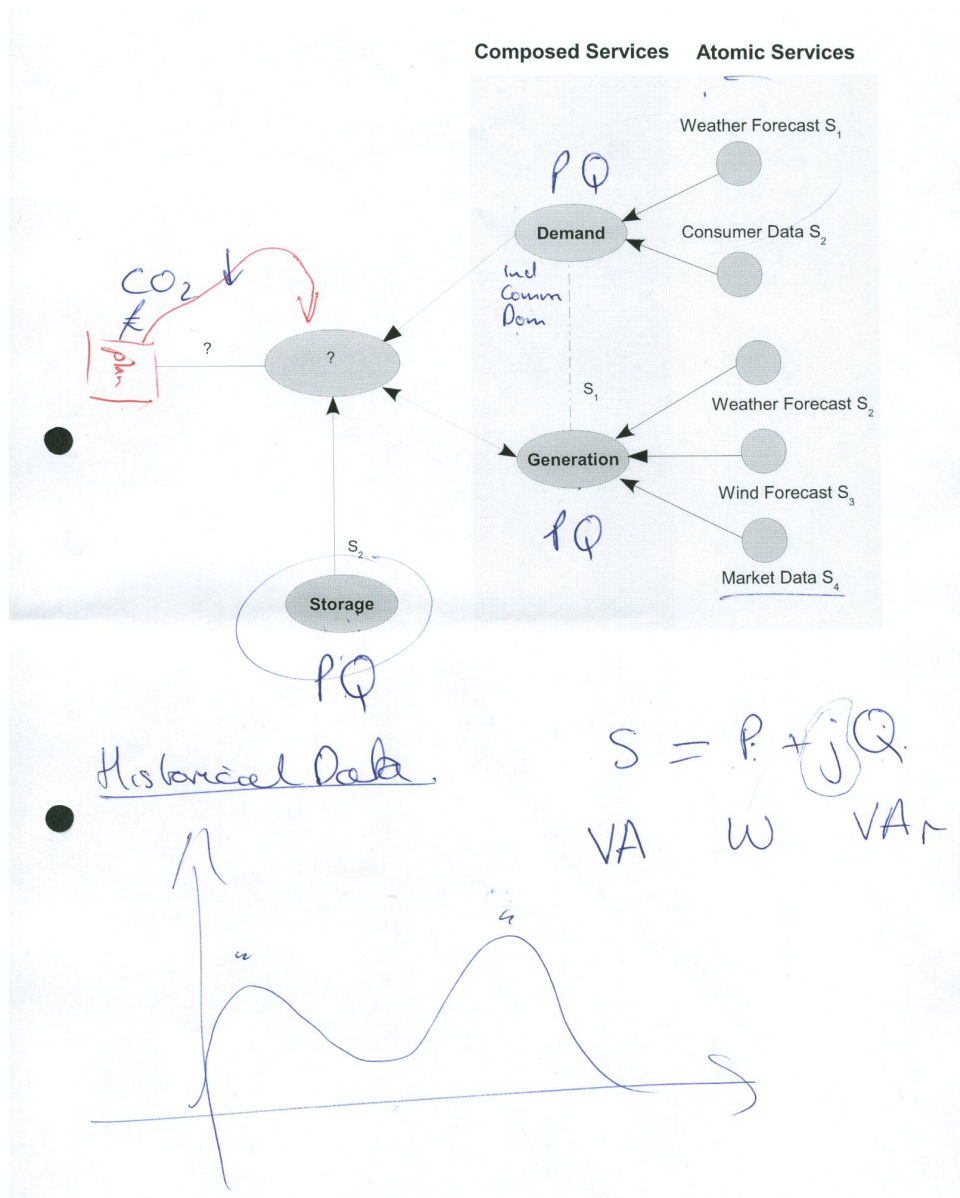 Composed Services Atomic Services
Weather Forecast S1
P Q
Demand
Consumer Data S2
Ind
Comm
Dom
CO2
£
plan
?
?
S1
Weather Forecast S2
Generation
Wind Forecast S3
P Q
S2
Market Data S4
Storage
P Q
S = P + jQ
Historical Data
VA W VAr